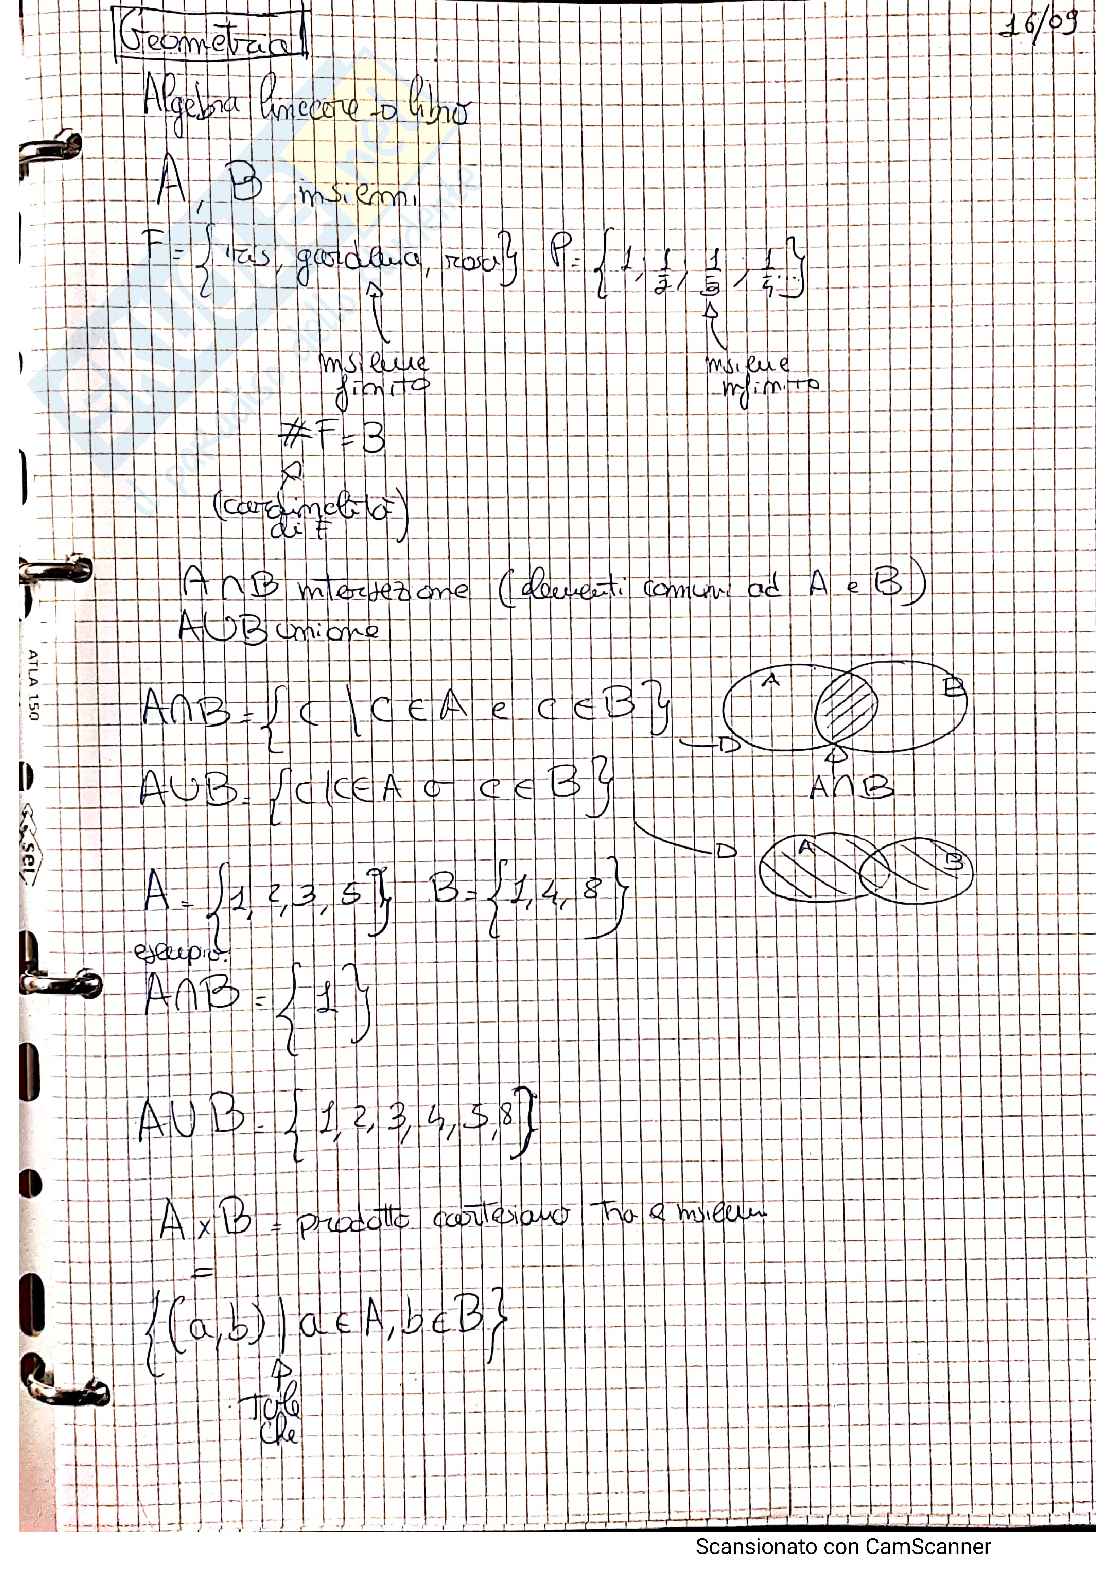 Geometria
16/09
Algebra lineare → libro
A, B insiemi
F = {iris, gardenia, rosa} P = {1, 1/2, 1/3, 1/4...}
insieme finito
insieme infinito
#F = 3
(cardinalità di F)
A∩B intersezione (elementi comuni ad A e B)
A∪B unione
A∩B = {c | c∈A e c∈B}
A B
A∩B
A∪B = {c | c∈A o c∈B}
A B
A = {1, 2, 3, 5} B = {1, 4, 8}
esempio:
A∩B = {1}
A∪B = {1, 2, 3, 4, 5, 8}
A×B = prodotto cartesiano tra 2 insiemi
=
{(a,b) | a∈A, b∈B}
Tale che
ATLA 150
SEI
Scansionato con CamScanner